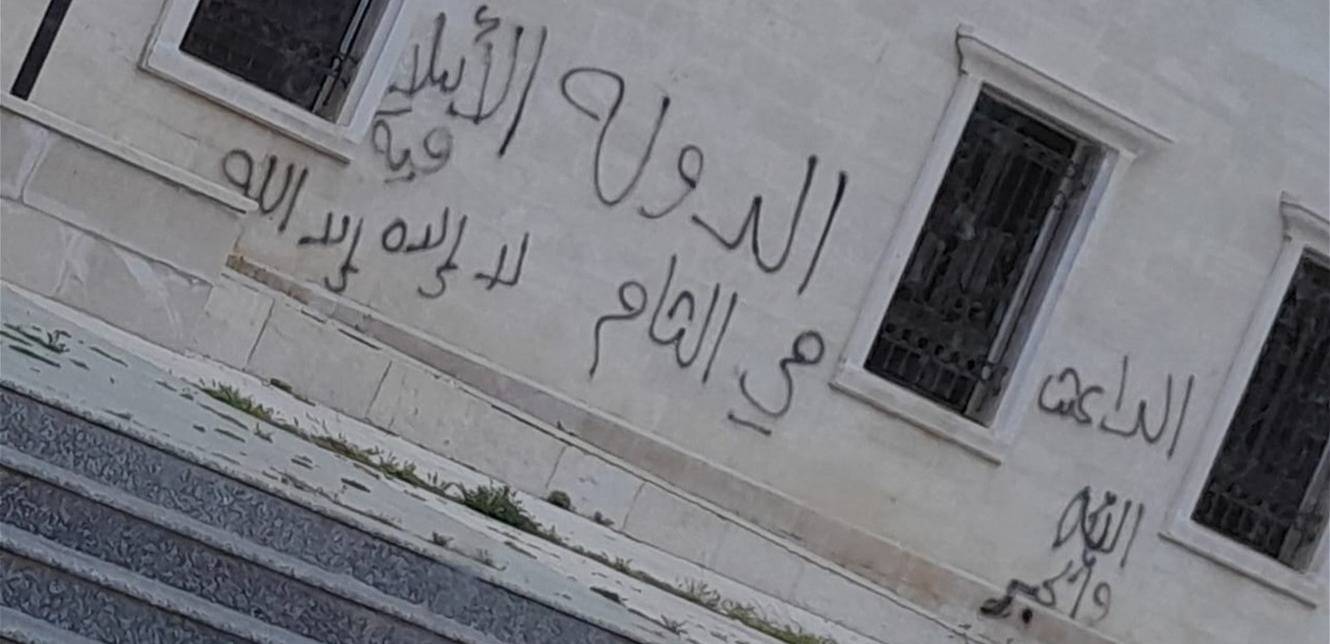 الدوله الأسلا
ميه
في الشام
لا إلاه إلا الله
الداعش
الله
وأكبر